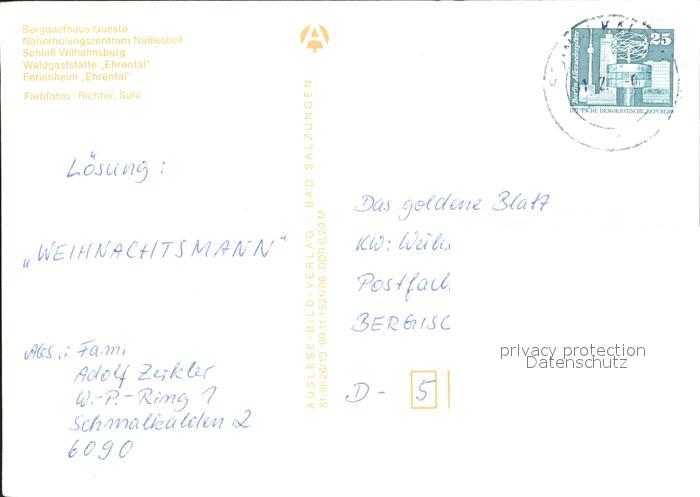 Berggasthaus Queste
Naherholungszentrum Nüßleshof
Schloß Wilhelmsburg
Waldgaststätte „Ehrental"
Ferienheim „Ehrental"
Farbfotos: Richter, Suhl
Lösung:
„WEIHNACHTSMANN"
Abs.: Fam.
Adolf Zeikler
W.-P.-Ring 1
Schmalkalden 2
6090
AUSLESE-BILD-VERLAG - BAD SALZUNGEN
St-III/26/13 09 11 1521/06 DDR 0,20 M
25
Berlin, Alexanderplatz
DEUTSCHE DEMOKRATISCHE REPUBLIK
Das goldene Blatt
KW: Weih
Postfach
BERGISC
D - 5
privacy protection
Datenschutz